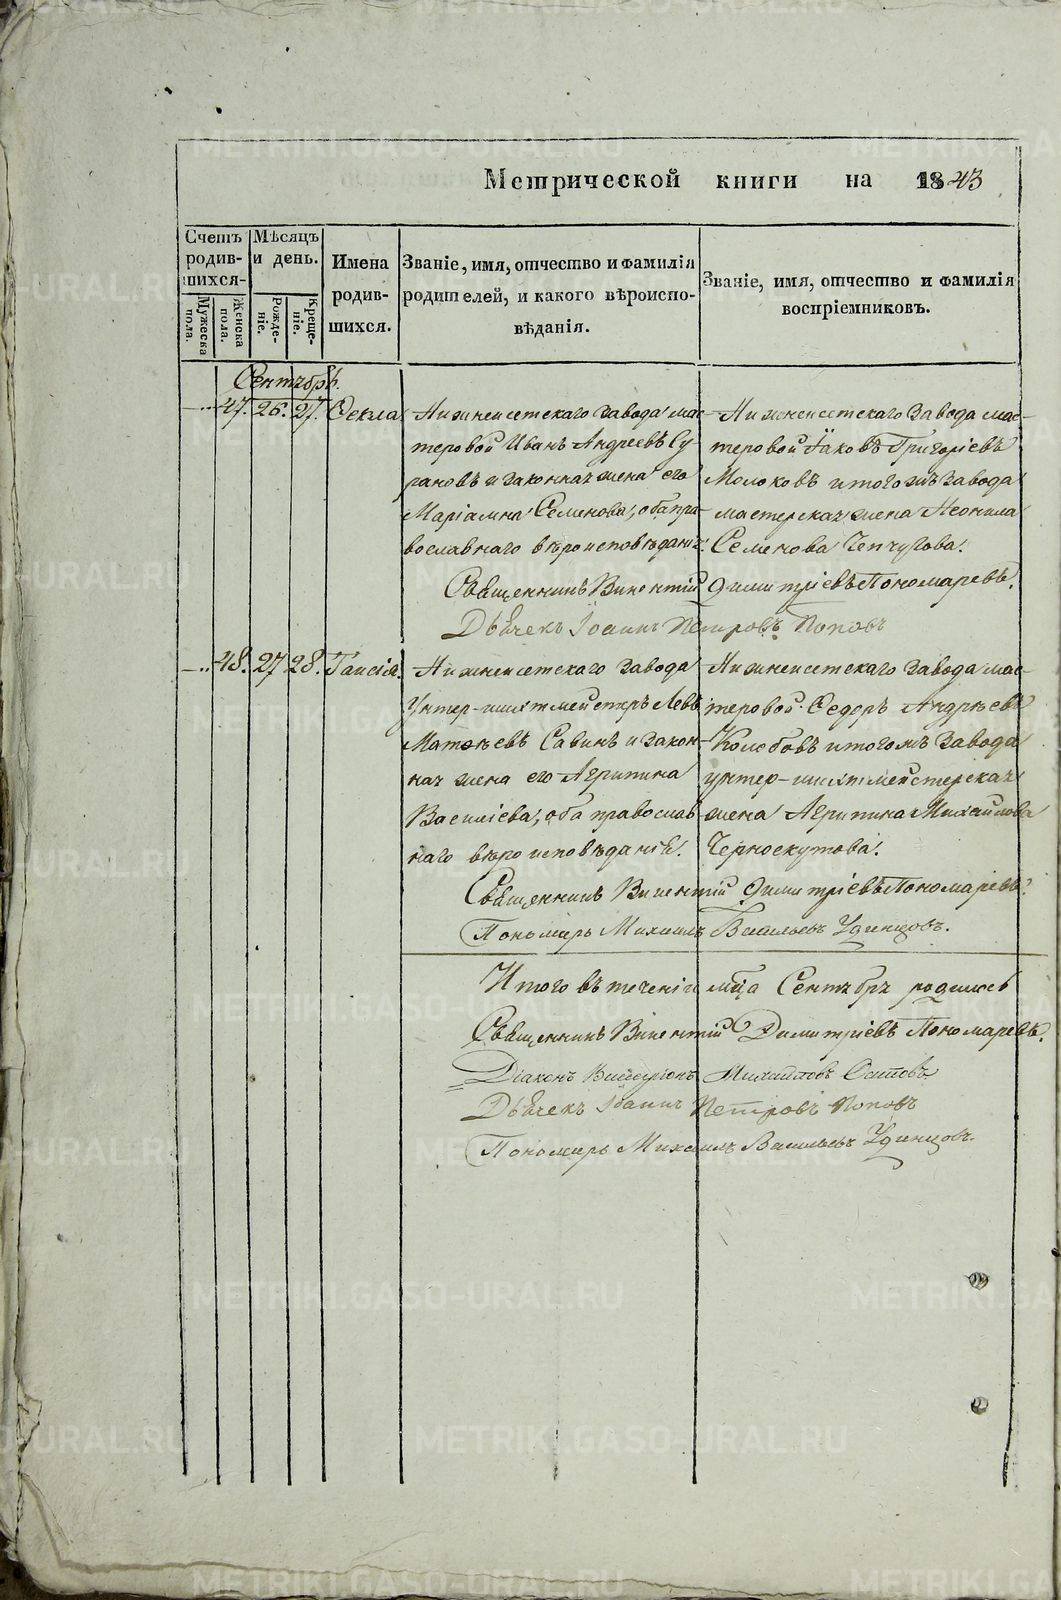 Метрической книги на 1843
Счетъ родив-шихся.
Мужеска пола.
Женска пола.
Мѣсяцъ и день.
Рожде-ніе.
Креще-ніе.
Имена родив-шихся.
Званіе, имя, отчество и фамилія родителей, и какого вѣроиспо-вѣданія.
Званіе, имя, отчество и фамилія воспріемниковъ.
Сентябрь.
47. 26. 27. Ѳекла
Нижнеисетскаго завода мас-
теровой Иванъ Андреевъ Су
рановъ и законная жена его
Маріамна Семенова, оба пра-
вославнаго вѣроисповѣданія.
Нижнеисетскаго завода мас-
теровой Іаковъ Григоріевъ
Молоковъ и тогожъ завода
мастерская жена Неонила
Семенова Чепчугова.
Священникъ Викентій Димитріевъ Пономаревъ.
Дьячекъ Іоаннъ Петровъ Поповъ
48. 27 28. Таисія.
Нижнеисетскаго завода
Унтер-шихтмейстръ Левъ
Матѳѣевъ Савинъ и закон-
ная жена его Агрипина
Василіева, оба православ
наго вѣроисповѣданія.
Нижнеисетскаго завода мас-
теровой Ѳедоръ Андрѣевъ
Колобовъ и тогожъ завода
унтер-шихтмейстерская
жена Агрипина Михайлова
Черноскутова.
Священникъ Викентій Димитріевъ Пономаревъ.
Пономарь Михаилъ Васильевъ Удинцовъ.
Итого въ теченіи мѣца Сентября родилось
Священникъ Викентій Димитріевъ Пономаревъ.
Діаконъ Виссаріонъ Михайловъ
Дьячекъ Іоаннъ Петровъ Поповъ
Пономарь Михаилъ Васильевъ Удинцовъ.
METRIKI.GASO-URAL.RU